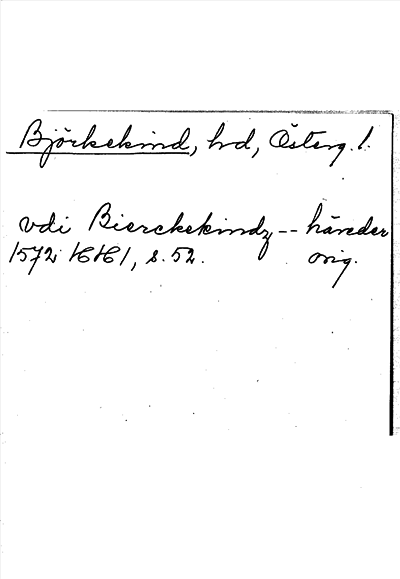 Björkekind, hd, Österg. l.
vdi Bierckekindz -- häreder
1572 HH 1, s. 52. orig.